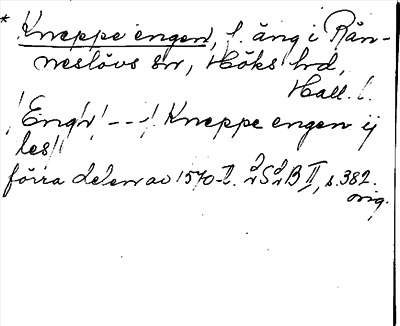 * Kneppe engen, f. äng i Rän-
neslövs sn, Höks hrd,
Hall. l.
/Engh/ --- / Kneppe engen ij
les//
förra delen av 1570-t. SB II, s. 382.
orig.